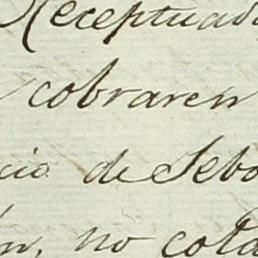 Receptuada
cobraren
cio de Sebo
no cota